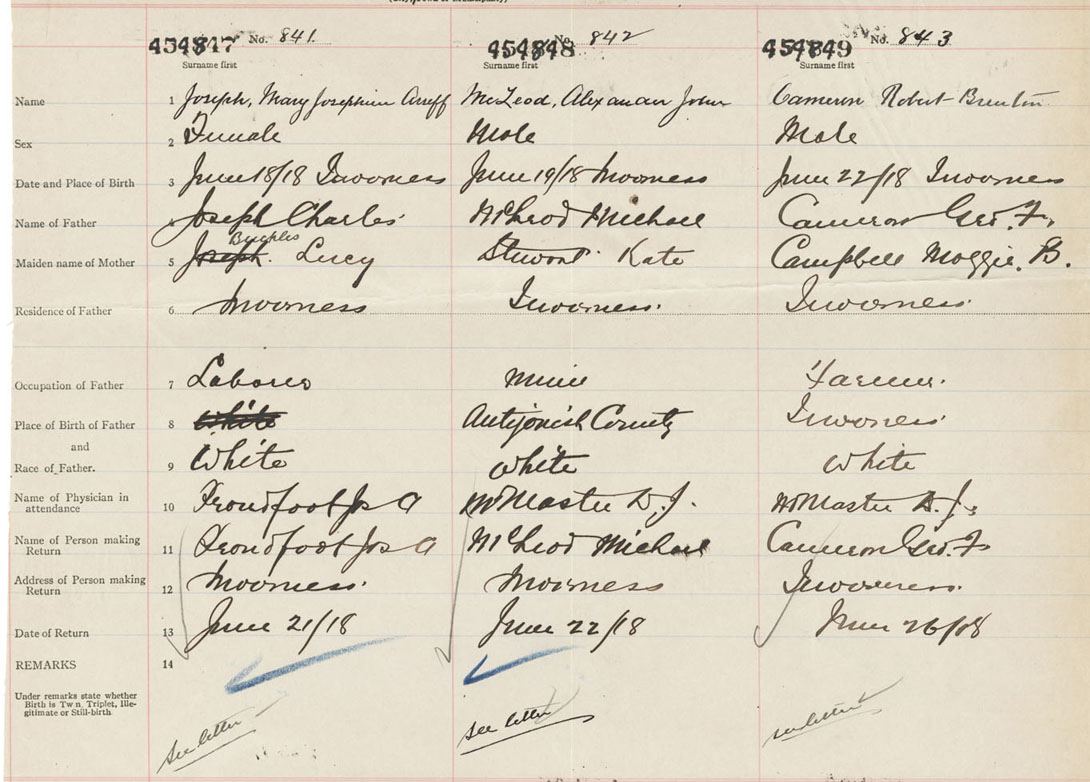 454847 No. 841. 454848 No. 842 454849 No. 843
Surname first Surname first Surname first
Name 1 Joseph, Mary Josephine Arieff McLeod, Alexander John Cameron Robert Brenton
Sex 2 Female Male Male
Date and Place of Birth 3 June 18/18 Inverness June 19/18 Inverness June 22/18 Inverness
Name of Father Joseph Charles McLeod Michael Cameron Geo. F.
Maiden name of Mother 5 Joseph. Lucy Stewart Kate Campbell Maggie. B.
Residence of Father 6 Inverness Inverness. Inverness.
Occupation of Father 7 Laborer Farmer.
Place of Birth of Father 8 White Antigonish County Inverness
and
Race of Father. 9 White White White
Name of Physician in
attendance 10 Proudfoot Jos A McMaster D. J. McMaster D. J.
Name of Person making
Return 11 Proudfoot Jos A McLeod Michael Cameron Geo. F
Address of Person making
Return 12 Inverness. Inverness Inverness.
Date of Return 13 June 21/18 June 22/18 June 26/18
REMARKS 14
Under remarks state whether
Birth is Twin, Triplet, Ille-
gitimate or Still-birth.
see letter see letter see letter